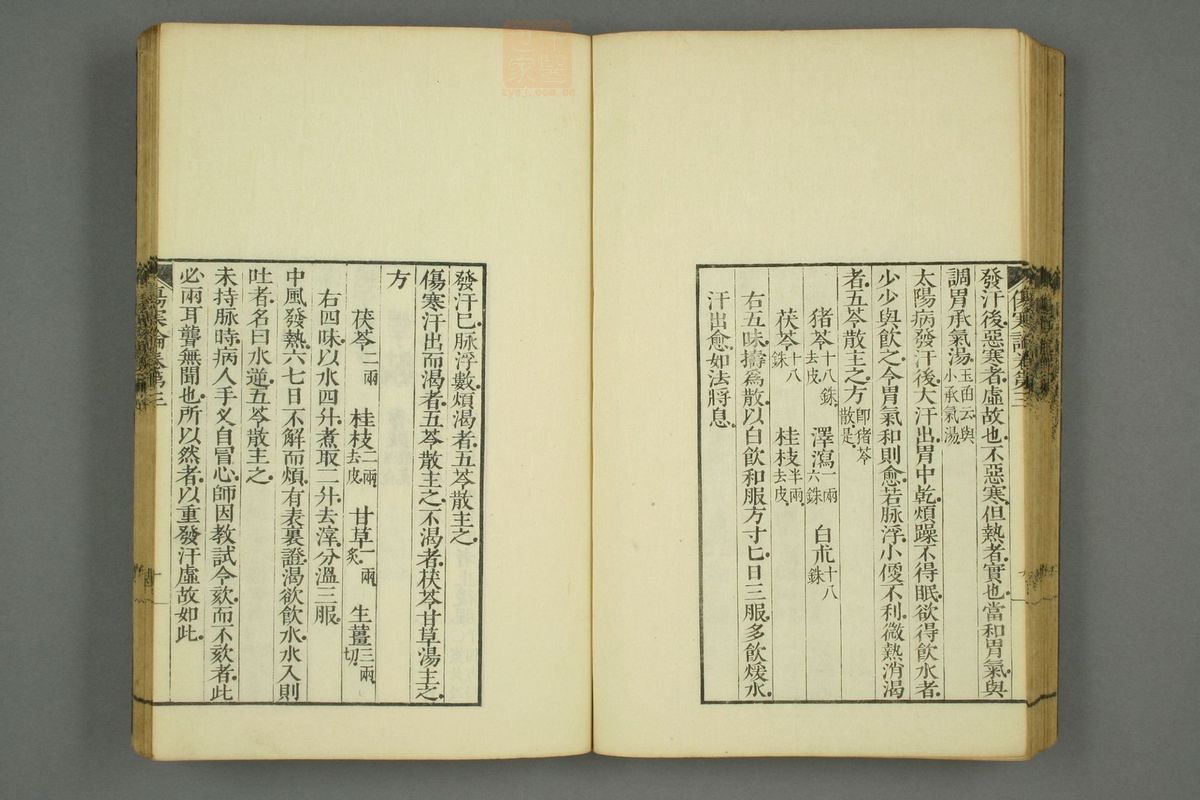 發汗後惡寒者虛故也不惡寒但熱者實也當和胃氣與
調胃承氣湯玉函云與小承氣湯
太陽病發汗後大汗出胃中乾煩躁不得眠欲得飲水者
少少與飲之令胃氣和則愈若脉浮小便不利微熱消渴
者五苓散主之方即猪苓散是
猪苓十八銖去皮 澤瀉一兩六銖 白朮十八銖
茯苓十八銖 桂枝半兩去皮
右五味擣爲散以白飲和服方寸匕日三服多飲煖水
汗出愈如法將息
發汗已脉浮數煩渴者五苓散主之
傷寒汗出而渴者五苓散主之不渴者茯苓甘草湯主之
方
茯苓二兩 桂枝二兩去皮 甘草一兩炙 生薑三兩切
右四味以水四升煮取二升去滓分溫三服
中風發熱六七日不解而煩有表裏證渴欲飲水水入則
吐者名曰水逆五苓散主之
未持脉時病人手叉自冒心師因教試令欬而不欬者此
必兩耳聾無聞也所以然者以重發汗虛故如此
傷寒論卷第三
zysj.com.cn